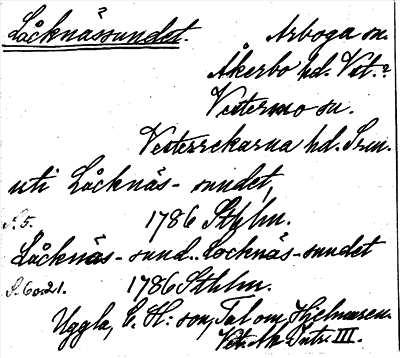 Låcknässundet.
Arboga sn.
Åkerbo hd. Vst.?
Vestermo sn.
Vesterrekarna hd. Srm.
uti Låcknäs-sundet,
S. 5. 1786 Sthlm.
Låcknäs-sund.. Locknäs-sundet
S. 6 o. 21. 1786 Sthlm.
Uggla, C. H:son, Tal om Hjelmaren.
Vet. Ak. Intr. III.